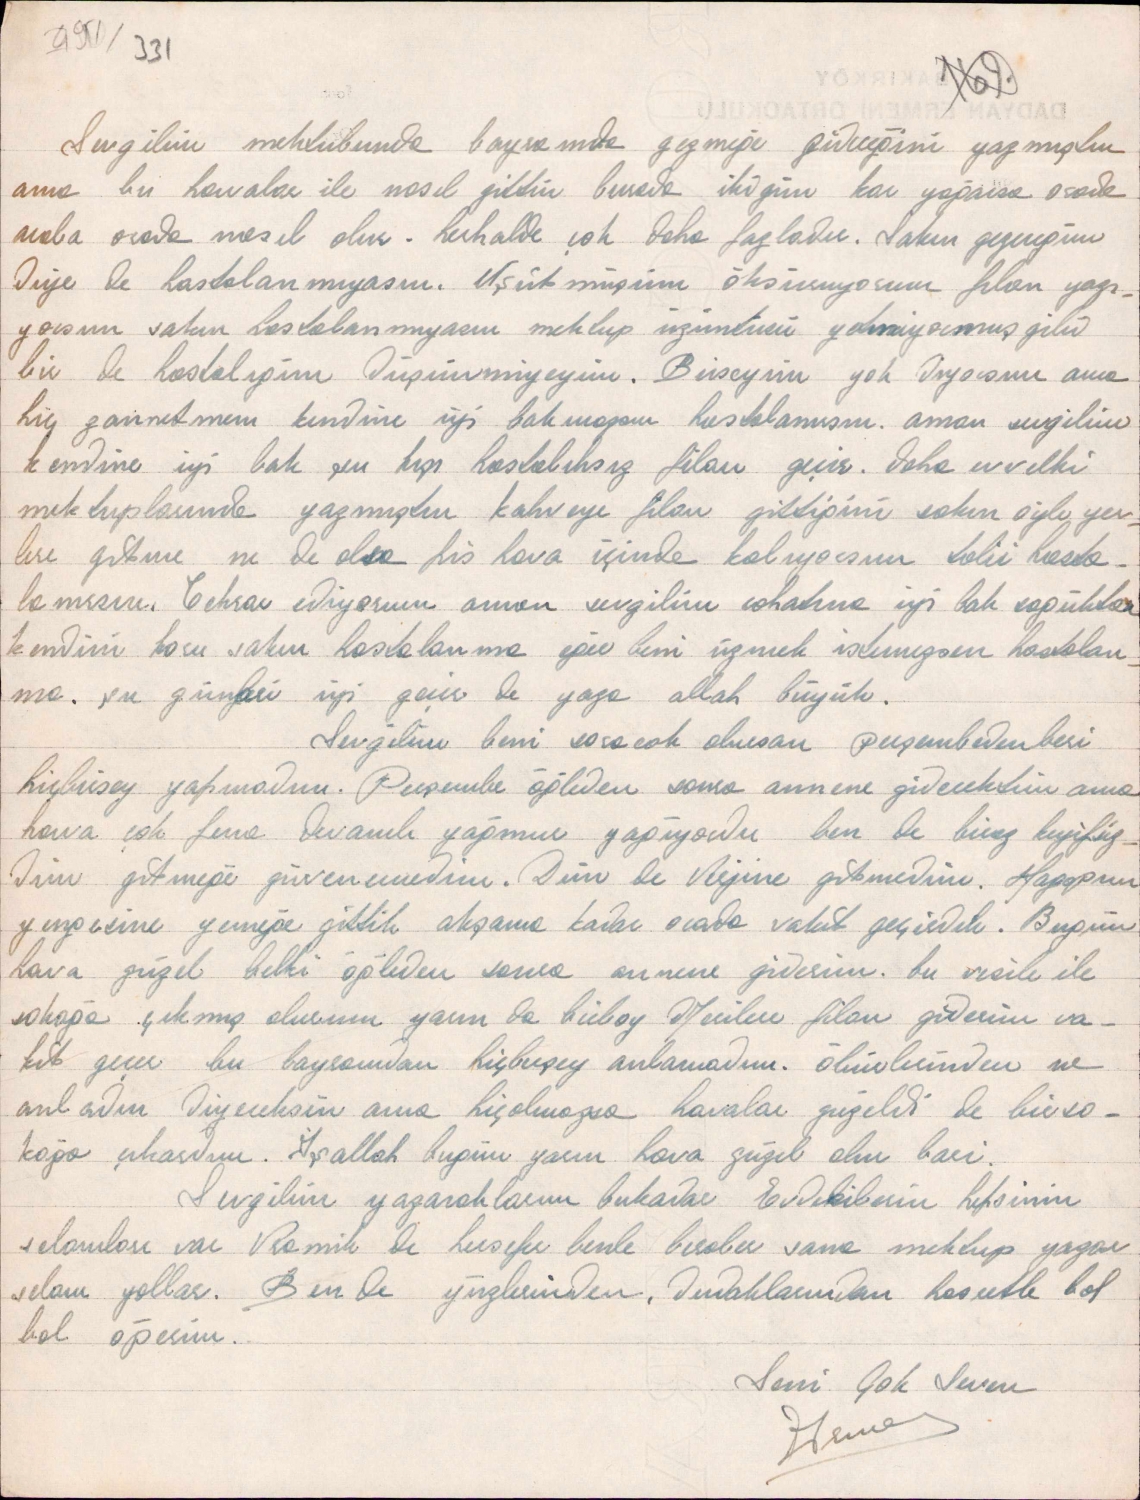 331
BAKIRKÖY
DADYAN ERMENİ ORTAOKULU
Sevgilim mektubunda bayramda gezmeğe gideceğini yazmıştın
ama bu havalar ile nasıl gittin burada iki gün kar yağarsa orada
acaba orada nasıl olur. herhalde çok daha fazladır. Sakın gezeceğim
diye de hastalanmıyasın. Üşütmüşüm öksürüyorum filan yazı-
yorsun sakın hastalanmıyasın mektup üzüntüsü yetmiyormuş gibi
bir de hastalığını düşünmiyeyim. Birşeyim yok diyorsun ama
hiç zannetmem kendine iyi bakmazsan hastalanırsın. aman sevgilim
kendine iyi bak şu kışı hastalıksız filan geçir. daha evvelki
mektuplarında yazmıştın kahveye filan gittiğini sakın öyle yer-
lere gitme ne de olsa pis hava içinde kalıyorsun tabii hasta-
lanırsın. Tekrar ediyorum aman sevgilim sıhatına iyi bak soğuktan
kendini koru sakın hastalanma eğer beni üzmek istemezsen hastalan-
ma. şu günleri iyi geçir de yaza allah büyük.
Sevgilim beni soracak olursan perşembedenberi
hiçbirşey yapmadım. Perşembe öğleden sonra annene gidecektim ama
hava çok fena devamlı yağmur yağıyordu ben de biraz keyifsiz-
dim gitmeğe güvenemedim. Dün de Rejine gitmedim. Hagopun
yengesine yemeğe gittik akşama kadar orada vakit geçirdik. Bugün
hava güzel belki öğleden sonra annene giderim. bu vesile ile
sokağa çıkmış olurum yarın da bir boy filan giderim va-
kit geçer bu bayramdan hiçbirşey anlamadım. ölümlerinden ne
anladın diyeceksin ama hiçolmazsa havalar güzeldi de bir so-
kağa çıkardım. İşallah bugün yarın hava güzel olur bari.
Sevgilim yazacaklarım bukadar Evdekilerin hepsinin
selamları var Vramik de her sefer benle beraber sana mektup yazar
selam yollar. Ben de yüzlerinden, dudaklarından hasretle bol
bol öperim.
Seni Çok Seven